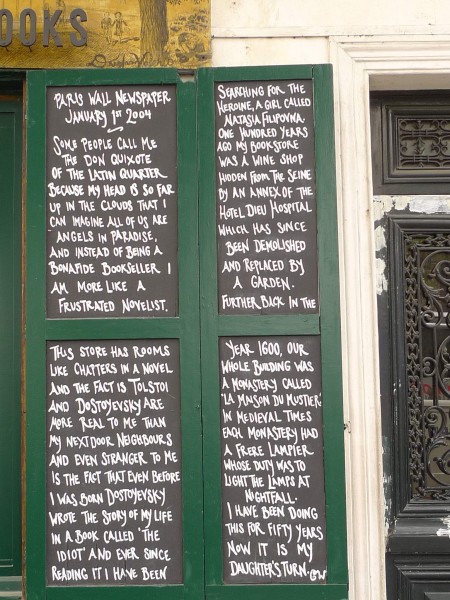 OOKS
PARIS WALL NEWSPAPER
JANUARY 1ST 2004
SOME PEOPLE CALL ME
THE DON QUIXOTE
OF THE LATIN QUARTER
BECAUSE MY HEAD IS SO FAR
UP IN THE CLOUDS THAT I
CAN IMAGINE ALL OF US ARE
ANGELS IN PARADISE,
AND INSTEAD OF BEING A
BONAFIDE BOOKSELLER I
AM MORE LIKE A
FRUSTRATED NOVELIST.
THIS STORE HAS ROOMS
LIKE CHAPTERS IN A NOVEL
AND THE FACT IS TOLSTOI
AND DOSTOYEVSKY ARE
MORE REAL TO ME THAN
MY NEXT DOOR NEIGHBOURS
AND EVEN STRANGER TO ME
IS THE FACT THAT EVEN BEFORE
I WAS BORN DOSTOYEVSKY
WROTE THE STORY OF MY LIFE
IN A BOOK CALLED 'THE
IDIOT' AND EVER SINCE
READING IT I HAVE BEEN
SEARCHING FOR THE
HEROINE, A GIRL CALLED
NATASIA FILIPOVNA.
ONE HUNDRED YEARS
AGO MY BOOKSTORE
WAS A WINE SHOP
HIDDEN FROM THE SEINE
BY AN ANNEX OF THE
HOTEL DIEU HOSPITAL
WHICH HAS SINCE
BEEN DEMOLISHED
AND REPLACED BY
A GARDEN.
FURTHER BACK IN THE
YEAR 1600, OUR
WHOLE BUILDING WAS
A MONASTERY CALLED
'LA MAISON DU MUSTIER'
IN MEDIEVAL TIMES
EACH MONASTERY HAD
A FRERE LAMPIER
WHOSE DUTY WAS TO
LIGHT THE LAMPS AT
NIGHTFALL.
I HAVE BEEN DOING
THIS FOR FIFTY YEARS
NOW IT IS MY
DAUGHTER'S TURN. GW